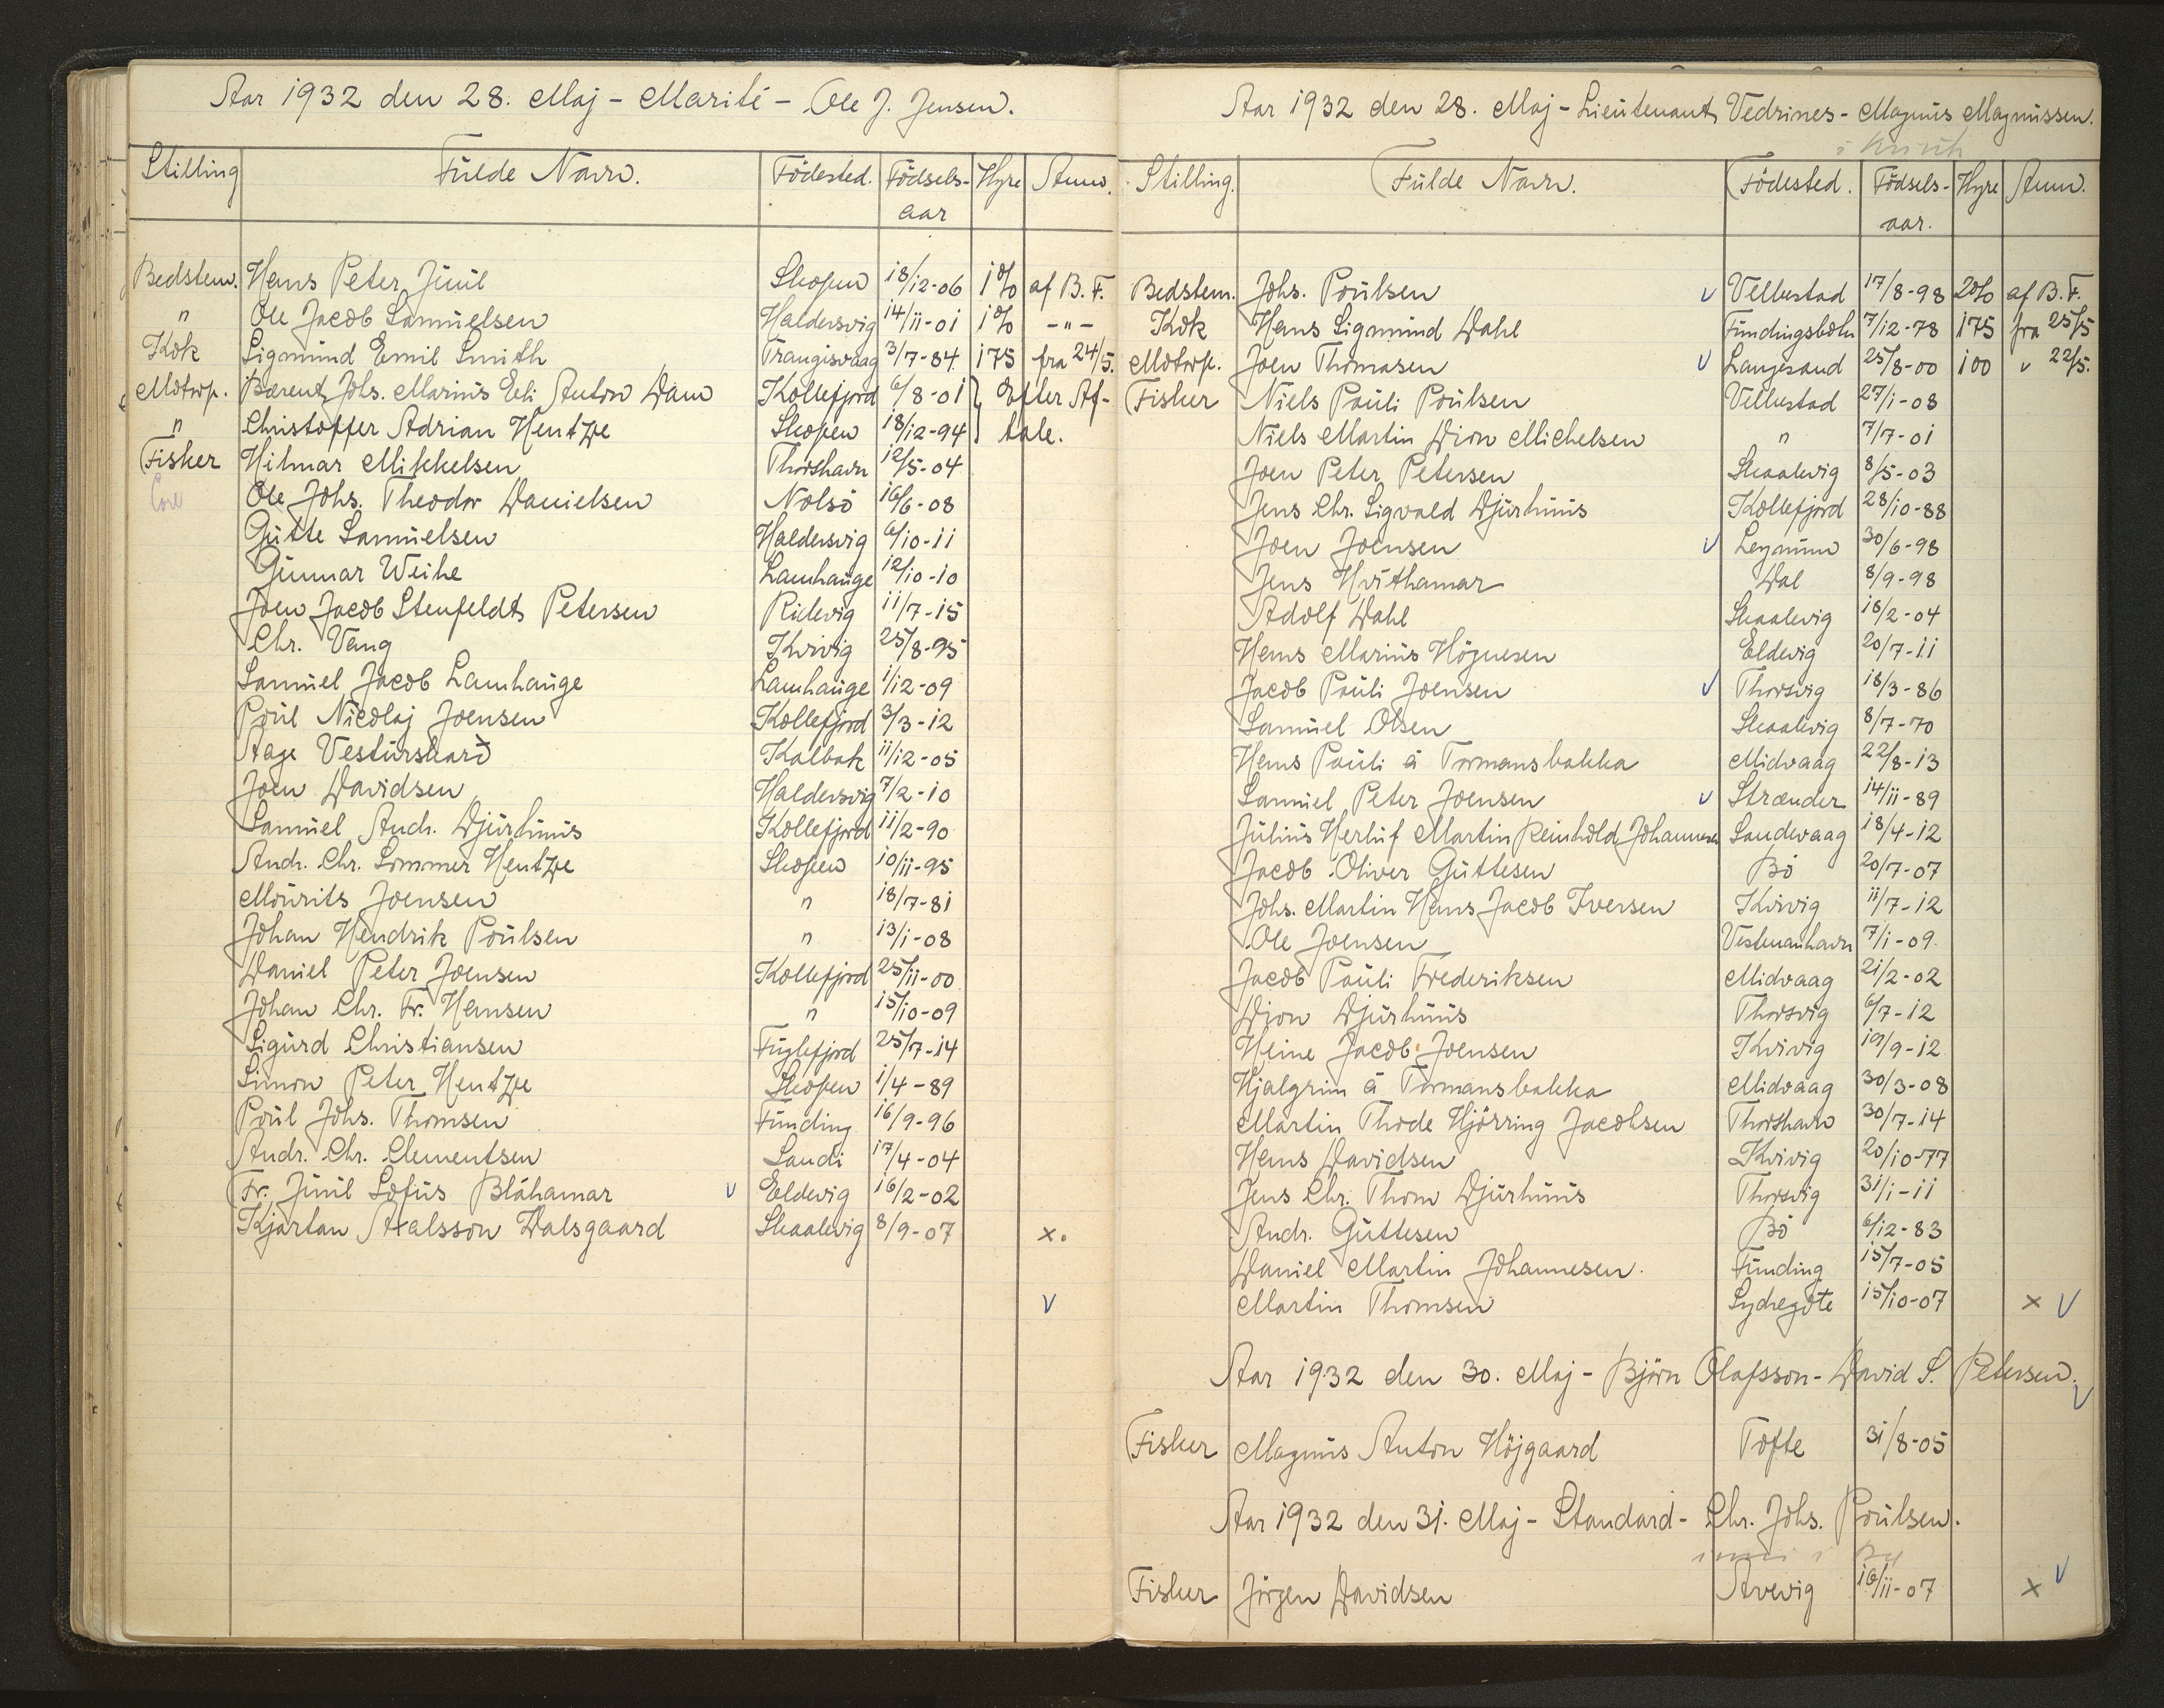 Aar 1932 den 28. Maj - Marité - Ole J. Jensen.
Stilling Fulde Navn. Födested. Födsels-aar Hyre Anm.
Bedstem. Hans Peter Juul Skopen 18/12-06 1% af B.F.
" Ole Jacob Samuelsen Haldersvig 14/11-01 1% -"-
Kok Sigmund Emil Smith Trangisvaag 3/7-84 175 fra 24/5.
Motorp. Berent Johs. Marius Eli Anton Dam Kollefjord 6/8-01 } Efter Af-
" Christoffer Adrian Hentze Skopen 18/12-94 } tale.
Fisker Hilmar Mikkelsen Thorshavn 12/5-04
Ole Johs. Theodor Danielsen Nolsö 16/6-08
Gutte Samuelsen Haldersvig 6/10-11
Gunnar Weihe Lamhauge 12/10-10
Joen Jacob Stenfeldt Petersen Ridevig 11/7-15
Chr. Vang Kvivig 25/8-95
Samuel Jacob Lamhauge Lamhauge 1/12-09
Poul Nicolaj Joensen Kollefjord 3/3-12
Aage Vesturskarð Kalbak 11/12-05
Joen Davidsen Haldersvig 7/2-10
Samuel Andr. Djurhuus Kollefjord 11/2-90
Andr. Chr. Sommer Hentze Skopen 10/11-95
Mourits Joensen " 18/7-81
Johan Hendrik Poulsen " 13/1-08
Daniel Peter Joensen Kollefjord 25/11-00
Johan Chr. Fr. Hansen " 15/10-09
Sigurd Christiansen Fuglefjord 25/7-14
Simon Peter Hentze Skopen 1/4-89
Poul Johs. Thomsen Funding 16/9-96
Andr. Chr. Clementsen Sandi 17/4-04
Fr. Juul Sofus Bláhamar v Eldevig 16/2-02
Kjartan Axalsson Dalsgaard Skaalevig 8/9-07 x.
v
Aar 1932 den 28. Maj - Lieutenant Vedrines - Magnus Magnussen.
Stilling. Fulde Navn. Födested. Födsels-aar. Hyre Anm.
Bedstem. Johs. Poulsen v Velbestad 17/8-98 2% af B.F.
Kok Hans Sigmund Dahl Fundingsbotn 7/12-78 175 fra 25/5
Motorp. Joen Thomasen v Langesand 25/8-00 100 " 22/5.
Fisker Niels Pauli Poulsen Velbestad 27/1-08
Niels Martin Dion Michelsen " 7/7-01
Joen Peter Petersen Skaalevig 8/5-03
Jens Chr. Sigvald Djurhuus Kollefjord 28/10-88
Joen Joensen v Leynum 30/6-98
Jens Hvithamar Dal 8/9-98
Adolf Dahl Skaalevig 18/2-04
Hans Marius Högnesen Eldevig 20/7-11
Jacob Pauli Joensen v Thorsvig 18/3-86
Samuel Olsen Skaalevig 8/7-70
Hans Pauli á Tormansbakka Midvaag 22/8-13
Samuel Peter Joensen v Strænder 14/11-89
Julius Herluf Martin Reinhold Johannesen Sandevaag 18/4-12
Jacob Oliver Guttesen Bö 20/7-07
Johs. Martin Hans Jacob Iversen Kvivig 11/7-12
Ole Joensen Vestmanhavn 7/1-09
Jacob Pauli Frederiksen Midvaag 21/2-02
Dion Djurhuus Thorsvig 6/7-12
Heine Jacob Joensen Kvivig 19/9-12
Hjalgrim á Tormansbakka Midvaag 30/3-08
Martin Thode Hjörring Jacobsen Thorshavn 30/7-14
Hans Davidsen Kvivig 20/10-77
Jens Chr. Thom Djurhuus Thorsvig 31/1-11
Andr. Guttesen Bö 6/12-83
Daniel Martin Johannesen. Funding 15/7-05
Martin Thomsen Sydregöte 15/10-07 x v
Aar 1932 den 30. Maj - Björn Olafsson - David S. Petersen.
v
Fisker Magnus Anton Höjgaard Tofte 31/8-05
Aar 1932 den 31. Maj - Standard - Chr. Johs. Poulsen.
Fisker Jörgen Davidsen Avevig 16/11-07 x v